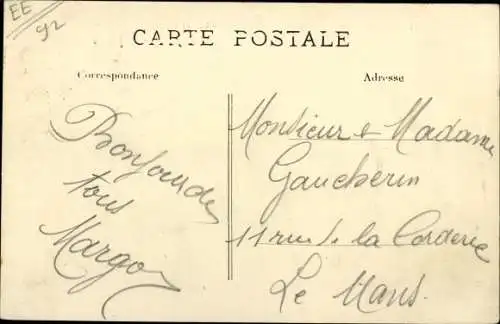 EE
92
CARTE POSTALE
Correspondance
Adresse
Bonjour de
tous
Margo
Monsieur & Madame
Gaucherin
11 rue de la Corderie
Le Mans.